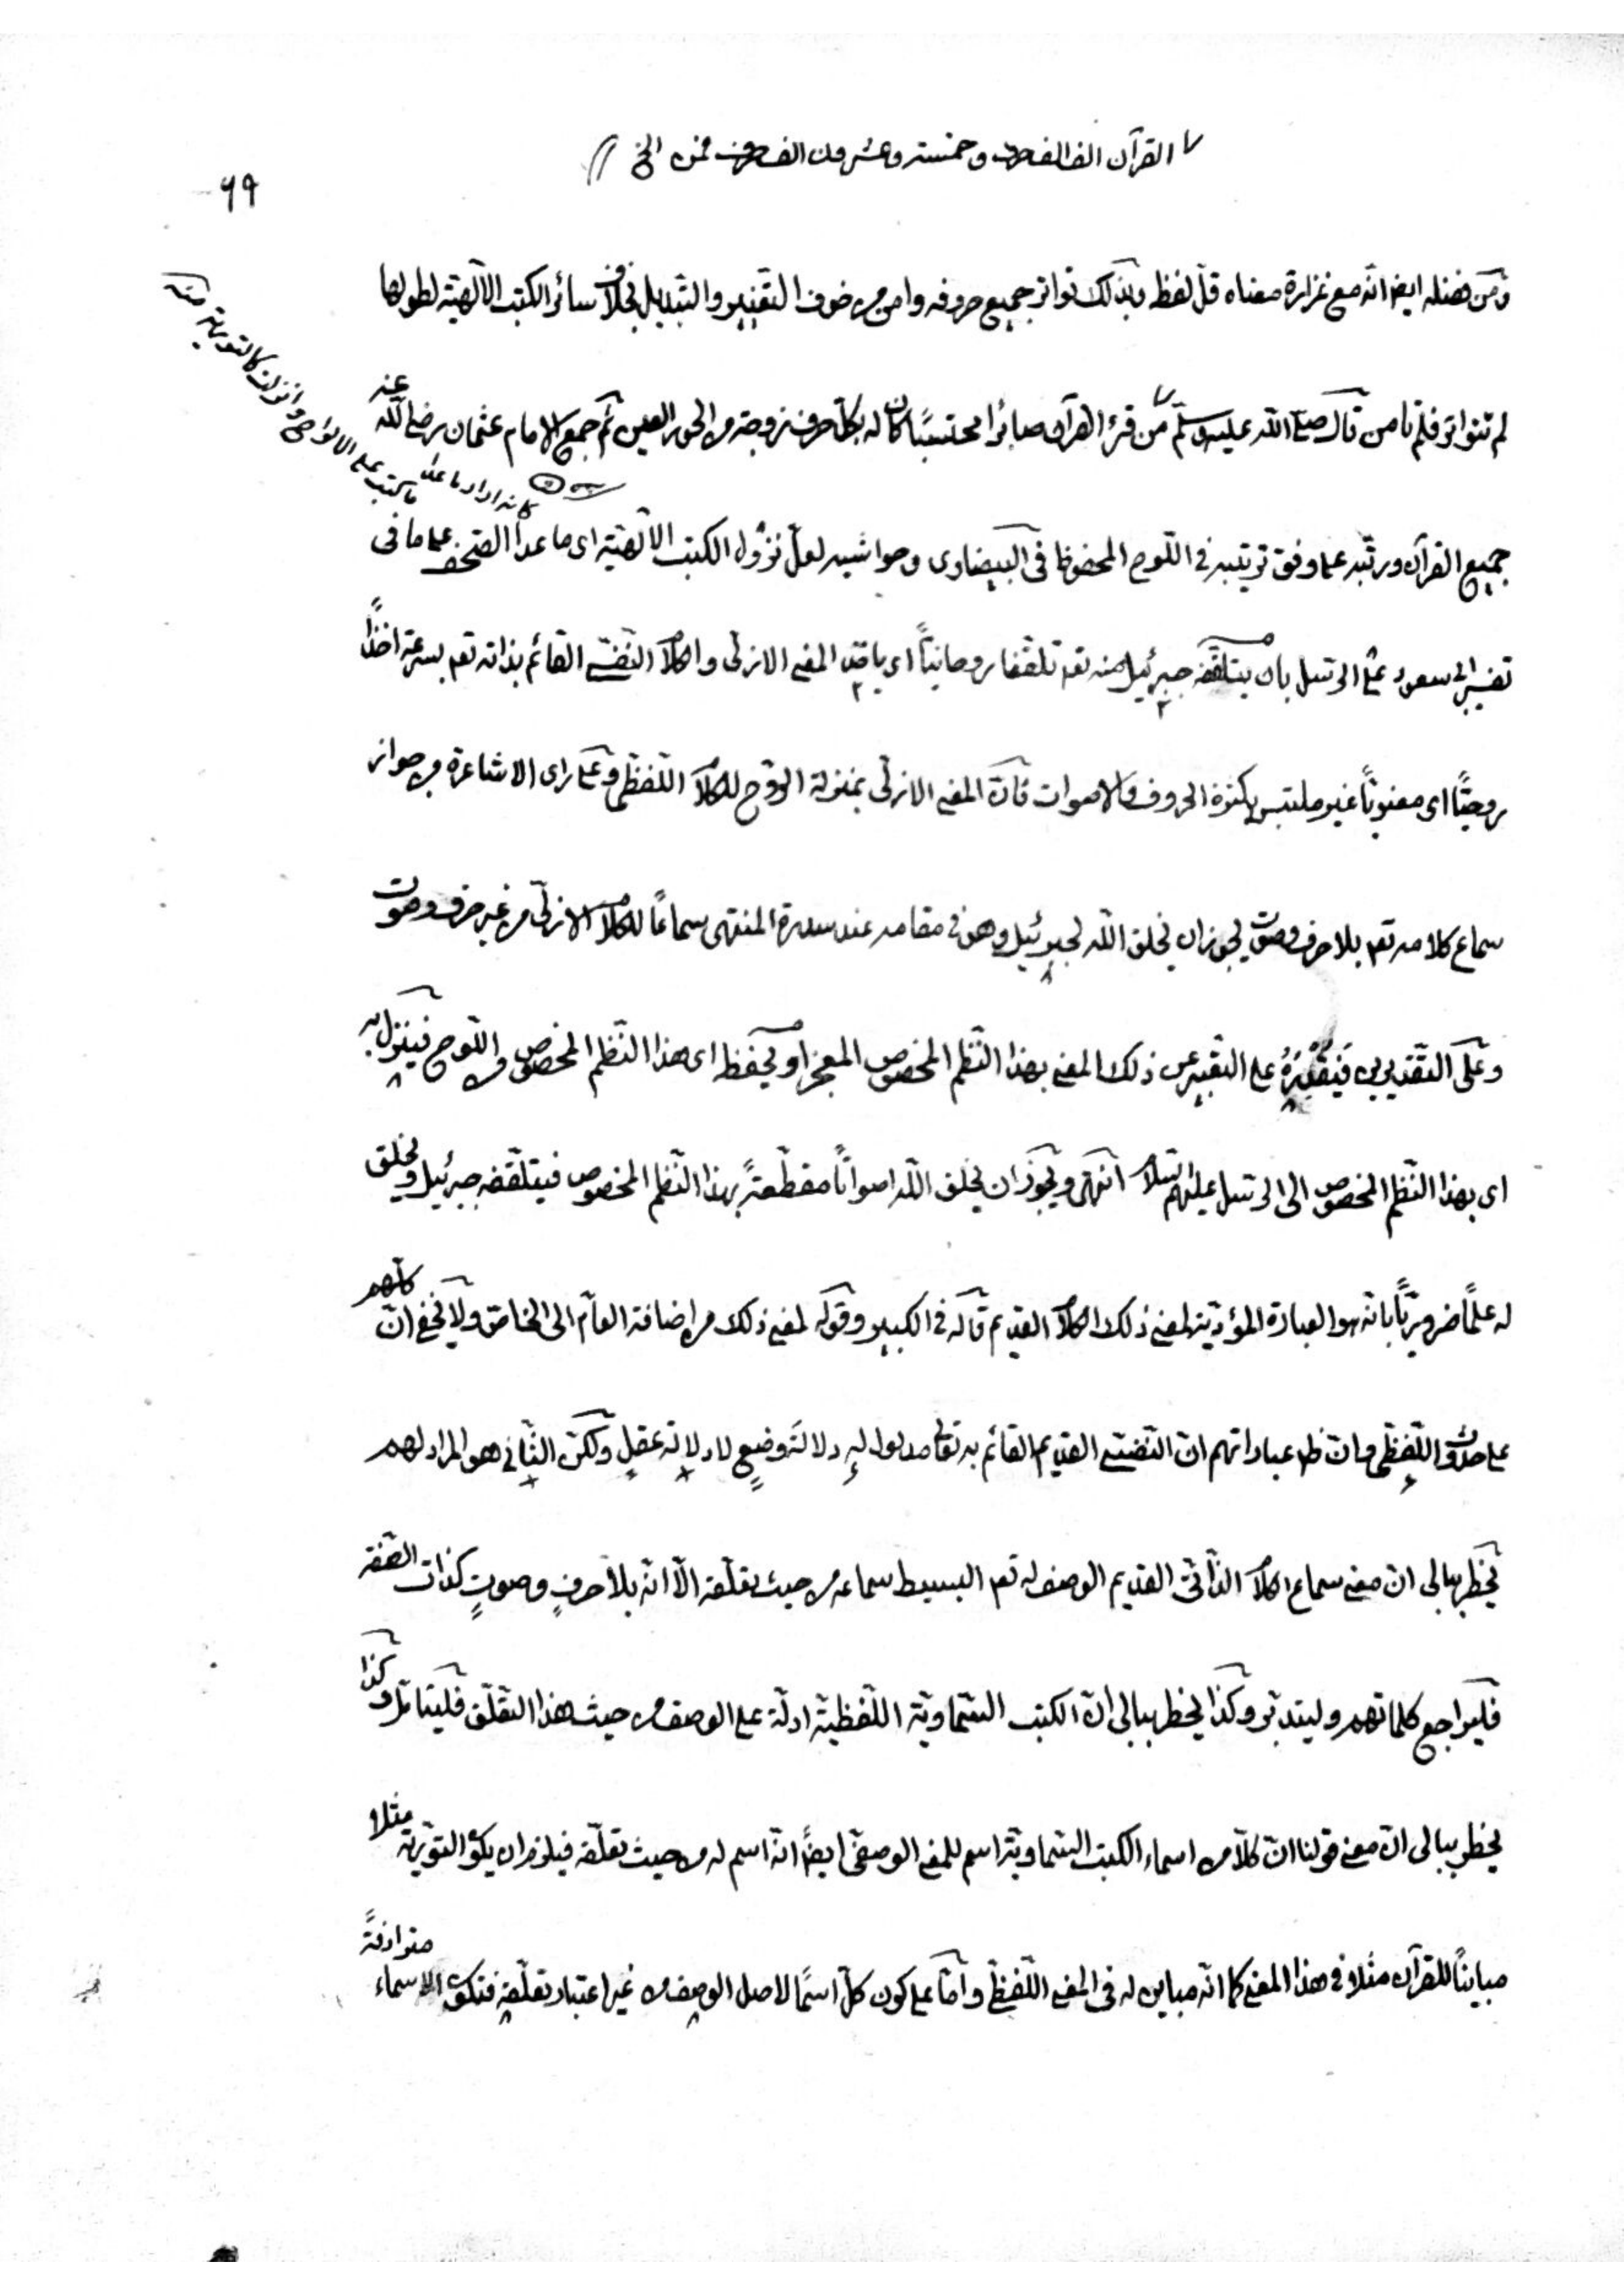 القرآن الف الف حرف وخمسة وعشرون الف حرف فمن الخ //
٦٩
ومن فضله ايضا انّه مع غزارة معناه قلّ لفظه وبذلك تواتر جميع حروفه وامن من خوف التغيير والتبديل بخلاف سائر الكتب الالٓهيّة لطولها
لم تتواتر فلم تامن قال صلّى اللّٰه عليه وسلّم من قرء القرآن صابرا محتسبًا كان له بكلّ حرف زوجة من الحور العين ثمّ جمع الامام عثمان رضى اللّٰه عنه
جميع القرآن ورتّبه على وفق ترتيبه فى اللّوح المحفوظ فى البيضاوى وحواشيه لعلّ نزول الكتب الالٓهيّة اى ما عدا الصّحف على ما فى
كانه اراد ما عدا ما كتب على الالواح وانزلت كالتورية منه
تفسير ابى سعود على الرّسل بان يتلقّفه جبرئيل منه تعـ تلقّفا روحانيّاً اى ياخذ المعنى الازلىّ والكلام النّفسىّ القائم بذاته تعـ بسرعة اخذًا
روحيًّا اى معنويّاً غير ملتبس بكثرة الحروف والاصوات فانّ المعنى الازلىّ بمنزلة الرّوح للكلام اللّفظىّ وعلى راى الاشاعرة من جواز
سماع كلامه تعـ بلا حرف وصوت يجوز ان يخلق اللّٰه لجبرئيل وهو فى مقامه عند سدرة المنتهى سماعًا للكلام الازلىّ من غير حرف وصوت
وعلى التقديرين فيقدره على التعبير عن ذلك المعنى بهذا النّظم المخصوص المعجز او يحفظه اى هذا النّظم المخصوص من اللّوح فينزل به
اى بهذا النّظم المخصوص الى الرّسل عليهم السّلام انتهى ويجوز ان يخلق اللّٰه اصواتاً مقطّعةً بهذا النّظم المخصوص فيتلقّفه جبرئيل ويخلق
له علمًا ضروريّاً بانّه هو العبارة المؤدّية لمعنى ذلك الكلام القديم قاله فى الكبير وقوله لمعنى ذلك من اضافة العامّ الى الخاصّ ولا يخفى انّ كلّهم
على حدوث اللّفظى وان ظ عباراتهم انّ النّفسىّ القديم القائم به تعالى مدلوله دلالةَ وضعٍ لا دلالة عقلٍ ولكنّ الثّانى هو المراد لهم
يخطر ببالى انّ معنى سماع الكلام الذّاتىّ القديم الوصف له تعـ البسيط سماعه من حيث تعلّقه الّا انّه بلا حرفٍ وصوتٍ كذات الصّفة
فليراجع كلماتهم وليتدبّر وكذا يخطر ببالى انّ الكتب السّماويّة اللّفظيّة ادلّة على الوصف من حيث هذا التعلّق فليتامّل وكذا
يخطر ببالى انّ معنى قولنا انّ كلّا من اسماء الكتب السّماويّة اسم للمعنى الوصفىّ ايضًا انّه اسم له من حيث تعلّقه فيلزم ان يكون التّورية مثلا
مباينًا للقرآن مثلا فى هذا المعنى كما انّه مباين له فى المعنى اللّفظىّ وامّا على كون كلّ اسمًا لاصل الوصف من غير اعتبار تعلّقه فتكون الاسماء مترادفةً